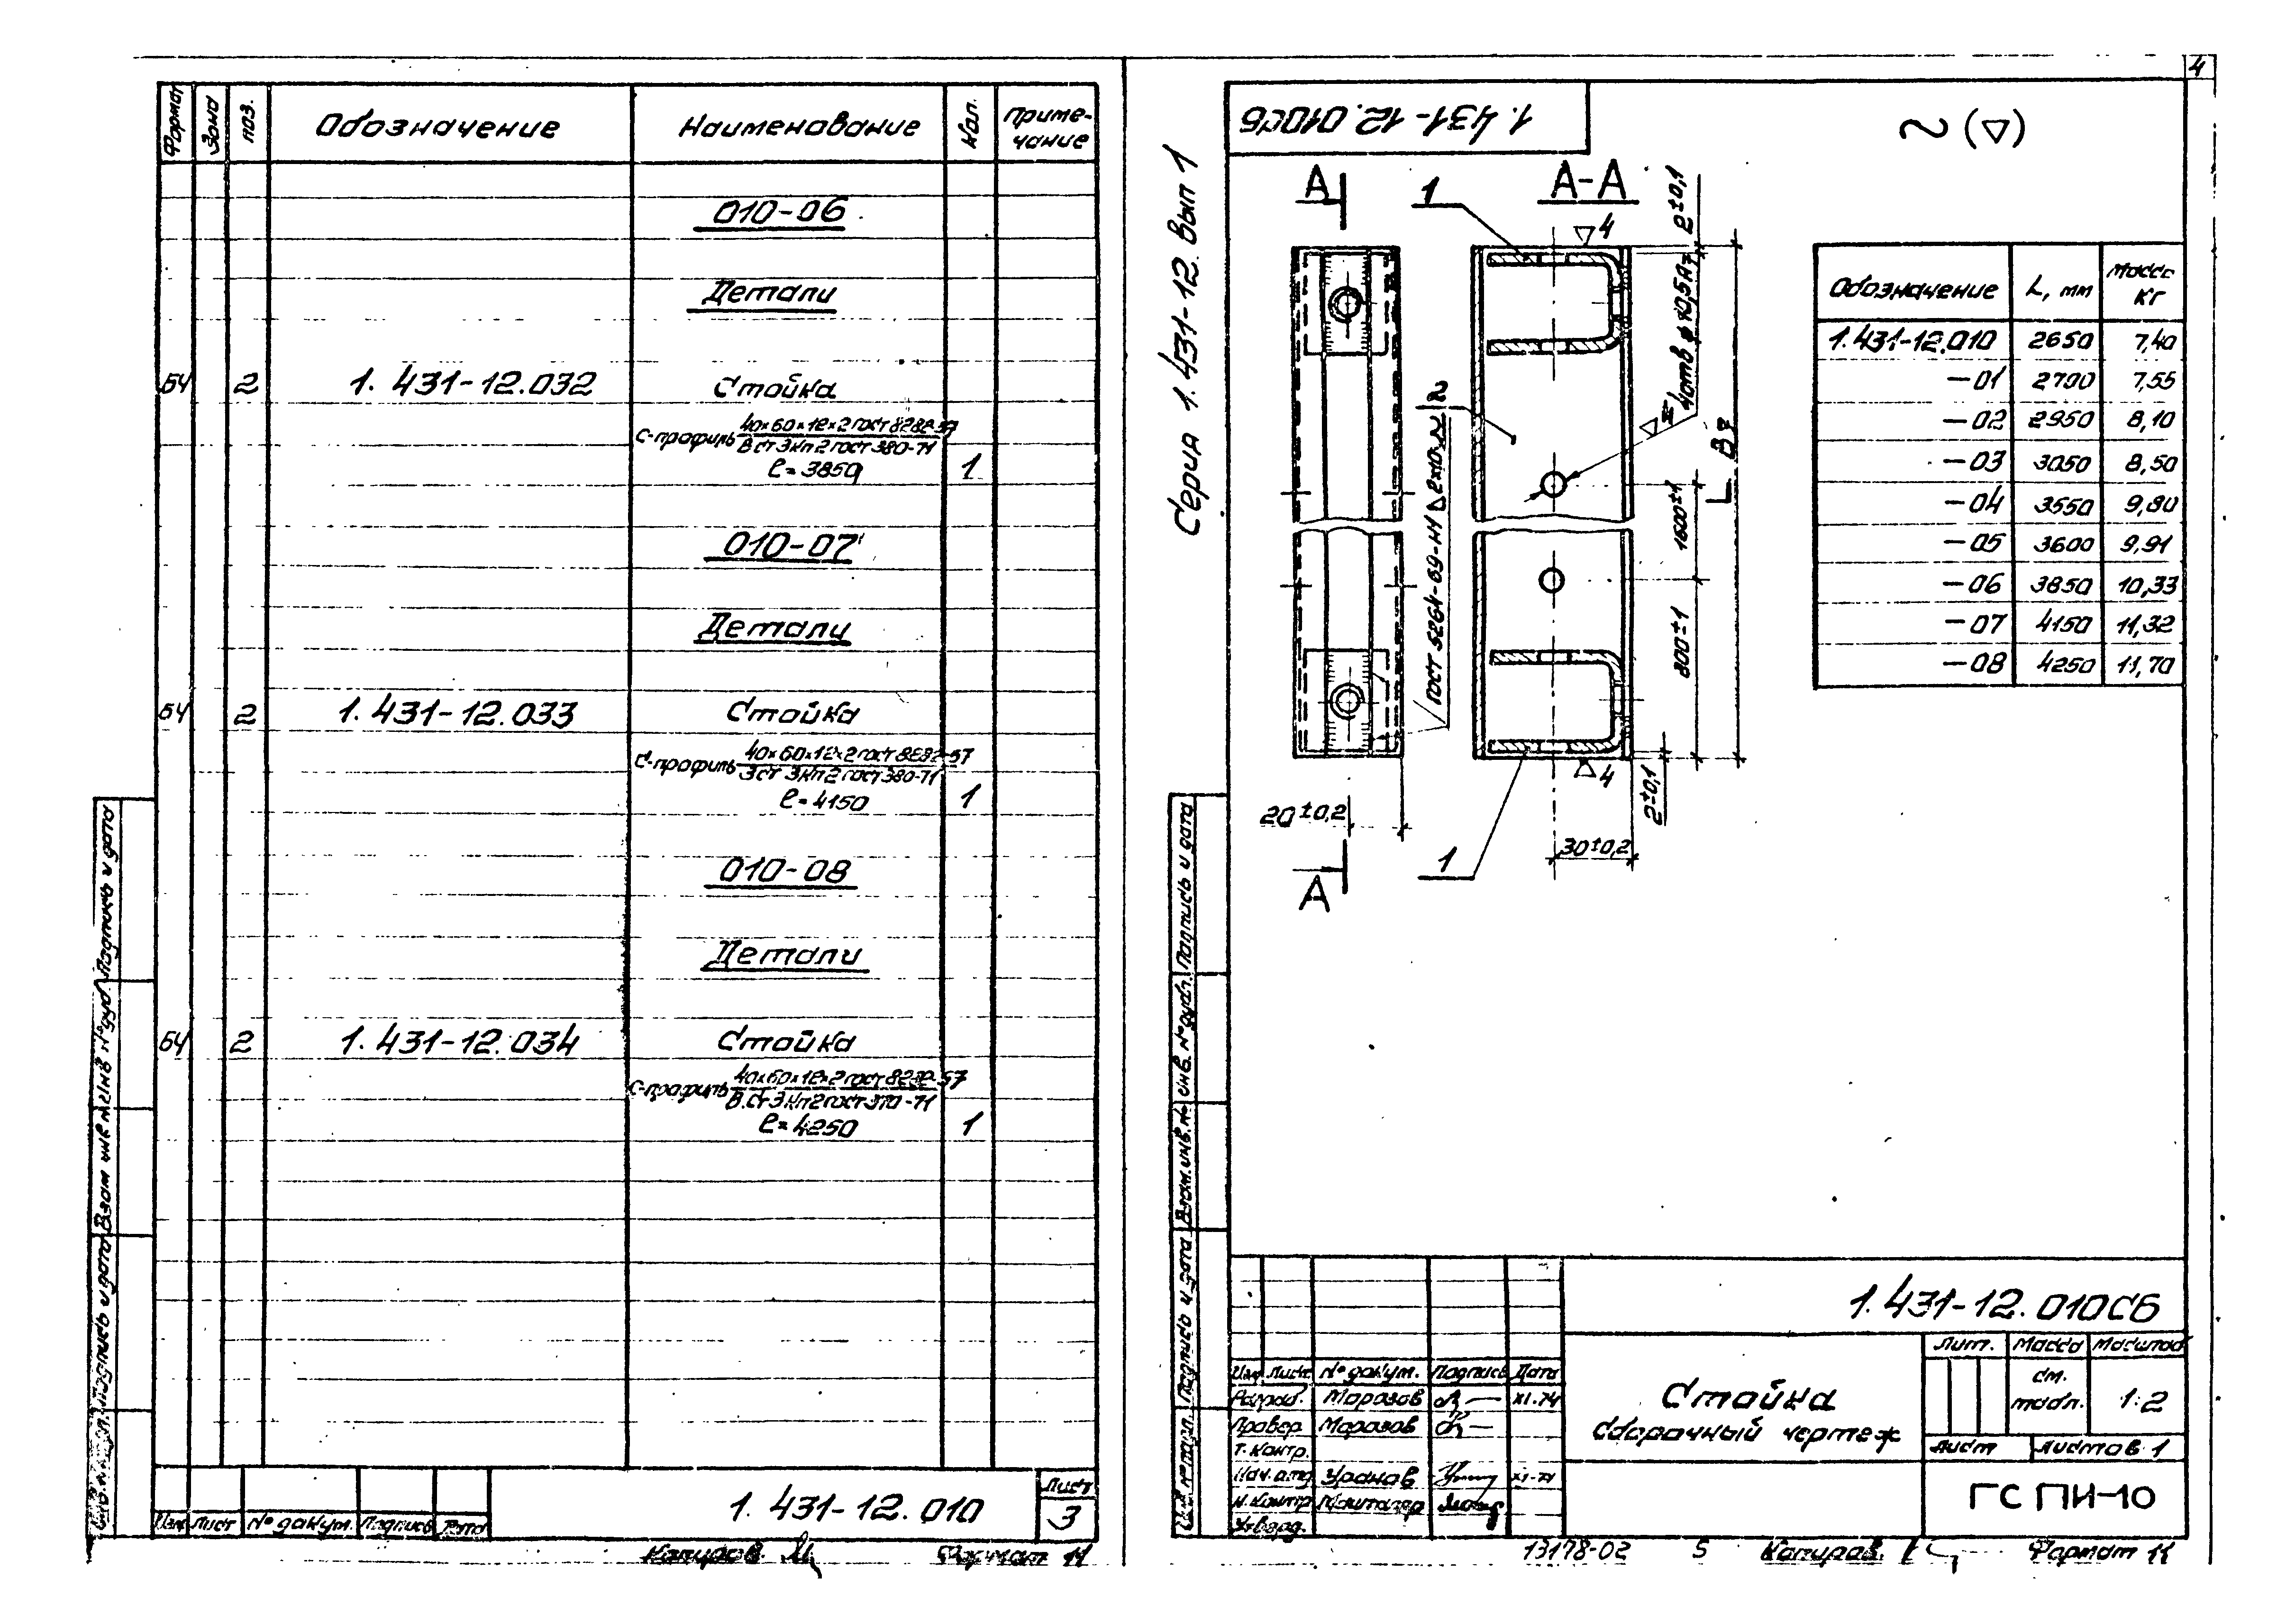 4
Формат Зона Поз. Обозначение Наименование Кол. Приме-
чание
010-06
Детали
БЧ 2 1.431-12.032 Стойка
С-профиль 40×60×12×2 гост 8282-57
В ст 3 кп 2 гост 380-71
ℓ=3850 1
010-07
Детали
БЧ 2 1.431-12.033 Стойка
С-профиль 40×60×12×2 гост 8282-57
3 ст 3 кп 2 гост 380-71
ℓ=4150 1
010-08
Детали
БЧ 2 1.431-12.034 Стойка
С-профиль 40×60×12×2 гост 8282-57
В.Ст 3 кп 2 гост 370-71
ℓ=4250 1
Подпись и дата
Взам инв №
Инв № дуб.
Подпись и дата
Изм Лист № докум. Подпись Дата
1.431-12.010
Лист
3
Копиров. Формат 11
1.431-12.010СБ
Серия 1.431-12. Вып 1
~ (▽)
А
1
А-А
▽4
2±0,1
4 отв ⌀ 10,5 А7
2
ГОСТ 5264-69-Н1 ⊿ 2х10
L В7
1600±1
800±1
▽4
2±0,1
20±0,2
30±0,2
1
А
Обозначение L, мм Масса
кг
1.431-12.010 2650 7,40
-01 2700 7,55
-02 2950 8,10
-03 3050 8,50
-04 3550 9,80
-05 3600 9,91
-06 3850 10,33
-07 4150 11,32
-08 4250 11,70
Подпись и дата
Инв. № дубл.
Взам. инв. №
Подпись и дата
Инв № подл.
1.431-12.010СБ
Изм Лист № докум. Подпись Дата
Разраб. Морозов XI-74
Провер Морозов
Т. контр.
Нач. отд Уранов XI-74
Н. контр
Утверд.
Стойка
Сборочный чертеж
Лит. Масса Масштаб
см.
табл. 1:2
Лист Листов 1
ГСПИ-10
13178-02 5 Копиров. Формат 11